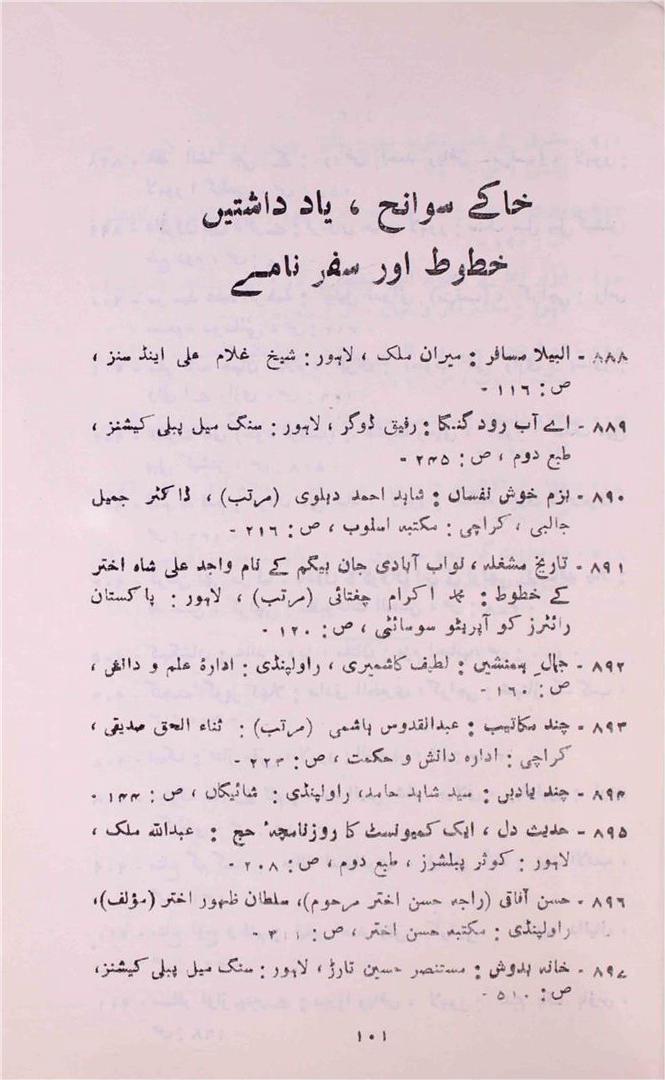 خاکے سوانح ، یاد داشتیں
خطوط اور سفر نامے
۸۸۸ - البیلا مسافر : میراں ملک ، لاہور : شیخ غلام علی اینڈ سنز ،
ص : ۱۱۶ -
۸۸۹ - اے آب رود گنگا : رفیق ڈوگر ، لاہور : سنگ میل پبلی کیشنز ،
طبع دوم ، ص : ۲۴۵ -
۸۹۰ - بزم خوش نفساں : شاہد احمد دہلوی (مرتب) ، ڈاکٹر جمیل
جالبی ، کراچی : مکتبہ اسلوب ، ص : ۲۱۶ -
۸۹۱ - تاریخ مشغلہ ، نواب آبادی جان بیگم کے نام واجد علی شاہ اختر
کے خطوط : محمد اکرام چغتائی (مرتب) ، لاہور : پاکستان
رائٹرز کو آپریٹو سوسائٹی ، ص : ۱۲۰ -
۸۹۲ - جمال ہمنشیں : لطیف کاشمیری ، راولپنڈی : ادارۂ علم و دانش ،
ص : ۱۶۰ -
۸۹۳ - چند مکاتیب : عبدالقدوس ہاشمی (مرتب) : ثناء الحق صدیقی ،
کراچی : ادارہ دانش و حکمت ، ص : ۲۲۳ -
۸۹۴ - چند یادیں : سید شاہد حامد، راولپنڈی : شائیگاں ، ص : ۱۴۴ -
۸۹۵ - حدیث دل ، ایک کمیونسٹ کا روزنامچۂ حج : عبداللہ ملک ،
لاہور : کوثر پبلشرز ، طبع دوم ، ص : ۲۰۸ -
۸۹۶ - حسن آفاقی (راجہ حسن اختر مرحوم)، سلطان ظہور اختر (مؤلف)،
راولپنڈی : مکتبہ حسن اختر ، ص : ۳۱۱ -
۸۹۷ - خانہ بدوش : مستنصر حسین تارڑ ، لاہور : سنگ میل پبلی کیشنز،
ص : ۵۱۰ -
۱۰۱